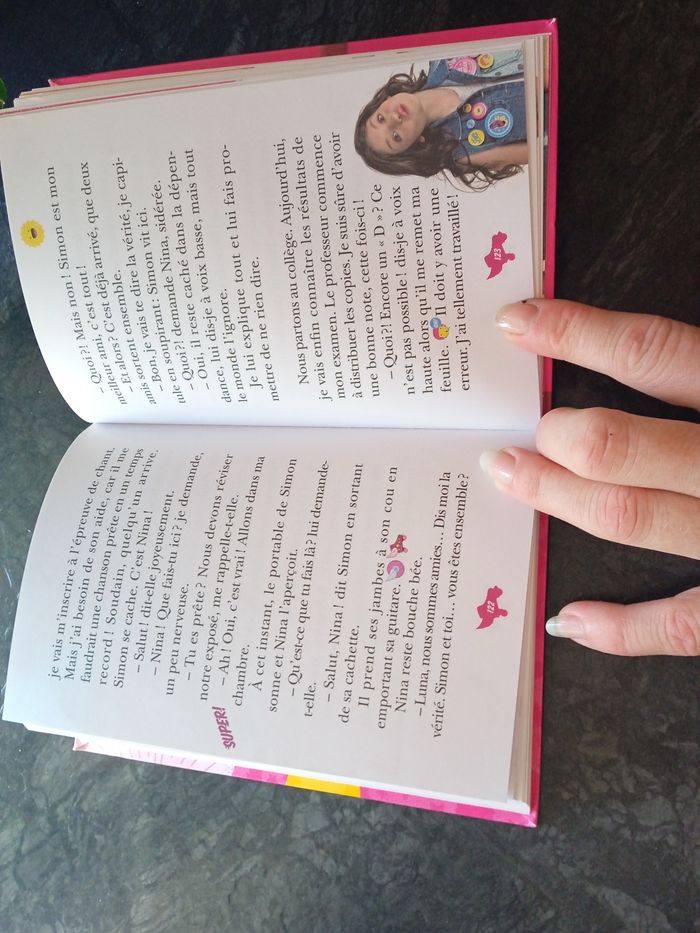 je vais m'inscrire à l'épreuve de chant.
Mais j'ai besoin de son aide, car il me
faudrait une chanson prête en un temps
record ! Soudain, quelqu'un arrive.
Simon se cache. C'est Nina !
– Salut ! dit-elle joyeusement.
– Nina ! Que fais-tu ici ? je demande,
un peu nerveuse.
– Tu es prête ? Nous devons réviser
notre exposé, me rappelle-t-elle.
– Ah ! Oui, c'est vrai ! Allons dans ma
chambre.
SUPER!
À cet instant, le portable de Simon
sonne et Nina l'aperçoit.
– Qu'est-ce que tu fais là ? lui demande-
t-elle.
– Salut, Nina ! dit Simon en sortant
de sa cachette.
Il prend ses jambes à son cou en
emportant sa guitare.
Nina reste bouche bée.
– Luna, nous sommes amies… Dis moi la
vérité. Simon et toi… vous êtes ensemble ?
122
– Quoi ?! Mais non ! Simon est mon
meilleur ami, c'est tout !
– Et alors ? C'est déjà arrivé, que deux
amis sortent ensemble.
– Bon, je vais te dire la vérité, je capi-
tule en soupirant : Simon vit ici.
– Quoi ?! demande Nina, sidérée.
– Oui, il reste caché dans la dépen-
dance, lui dis-je à voix basse, mais tout
le monde l'ignore.
Je lui explique tout et lui fais pro-
mettre de ne rien dire.
Nous partons au collège. Aujourd'hui,
je vais enfin connaître les résultats de
mon examen. Le professeur commence
à distribuer les copies. Je suis sûre d'avoir
une bonne note, cette fois-ci !
– Quoi ?! Encore un « D » ? Ce
n'est pas possible ! dis-je à voix
haute alors qu'il me remet ma
feuille. Il doit y avoir une
erreur. J'ai tellement travaillé !
123